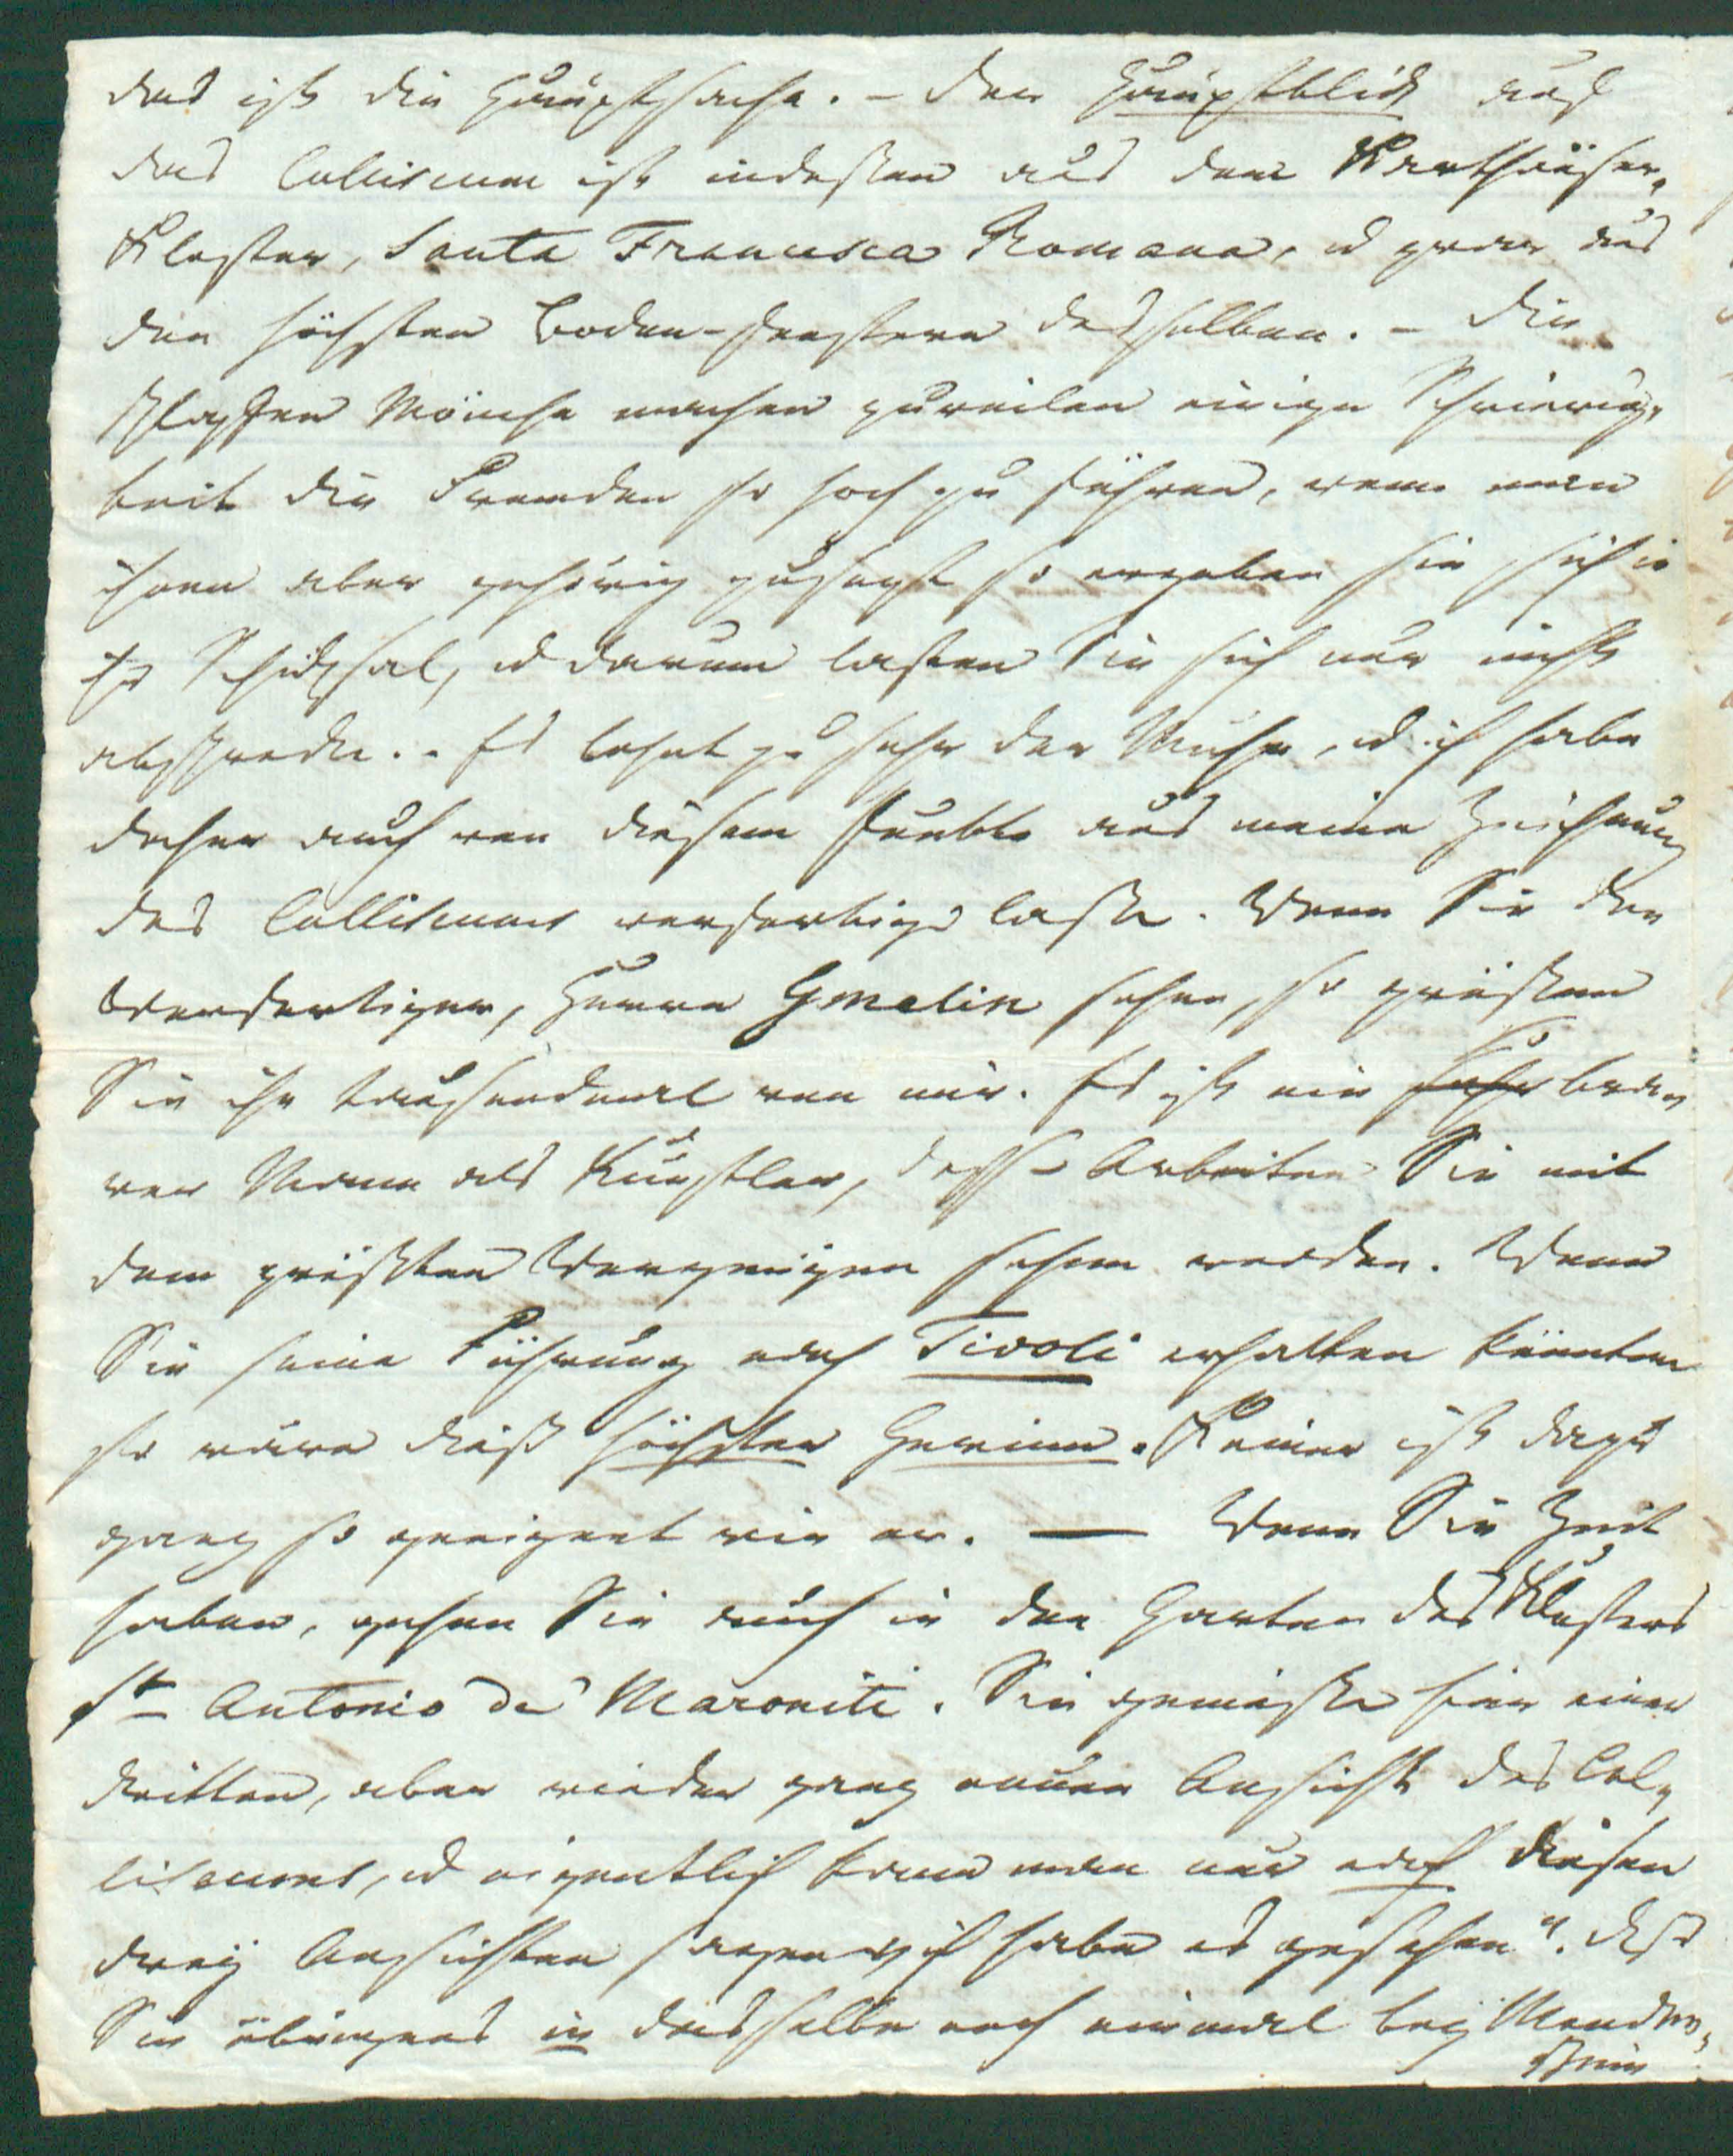 das ist die Hauptsache. – Der Hauptblick auf
das Colliseum ist indessen aus dem Karthäuser-
Kloster, Santa Francesca Romana, u zwar aus
den höchsten Boden-fenstern desselben. – Die
Mönche machen zuweilen einige Schwierig-
keit die Fremden so hoch zu führen, wenn man
ihnen aber gehörig zusezt so ergeben sie sich in
ihr Schicksal, u darum lassen Sie sich nur nicht
abschrecken. – Es lohnt zu sehr der Mühe, u ich habe
daher auch von diesem Punkte aus meine Zeichnung
des Colliseums verfertigen lassen. Wenn Sie den
Verfertiger, Herrn Gmelin sehen, so grüssen
Sie ihn tausendmal von mir. Es ist ein bra-
ver Mann als Künstler, dessen Arbeiten Sie mit
dem größten Vergnügen sehen werden. Wenn
Sie seine Führung nach Tivoli erhalten könnten
so wäre dieß höchster Gewinn. Keiner ist dazu
ganz so geeignet wie er. — Wenn Sie Zeit
haben, gehen Sie auch in den Garten des Klosters
St Antonio de' Maroniti. Sie geniessen hier einer
dritten, aber wieder ganz neuen Ansicht des Col-
liseums, u eigentlich kann man nur nach diesen
drey Ansichten sagen „ich habe es gesehen“. Daß
Sie übrigens in dasselbe noch einmal bey Monden-
schein